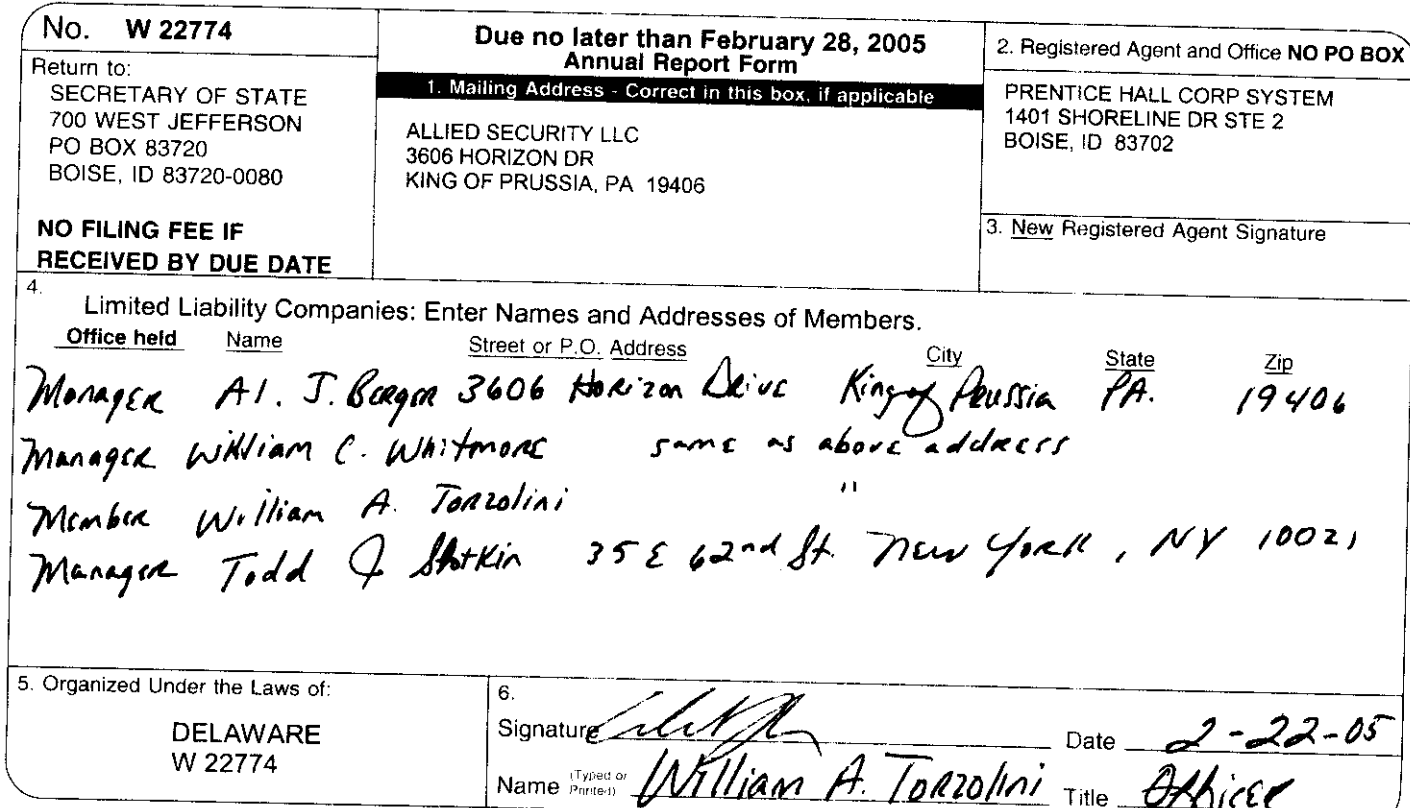 No. W 22774
Return to:
SECRETARY OF STATE
700 WEST JEFFERSON
PO BOX 83720
BOISE, ID 83720-0080
NO FILING FEE IF
RECEIVED BY DUE DATE
Due no later than February 28, 2005
Annual Report Form
1. Mailing Address - Correct in this box, if applicable
ALLIED SECURITY LLC
3606 HORIZON DR
KING OF PRUSSIA, PA 19406
2. Registered Agent and Office NO PO BOX
PRENTICE HALL CORP SYSTEM
1401 SHORELINE DR STE 2
BOISE, ID 83702
3. New Registered Agent Signature
4.
Limited Liability Companies: Enter Names and Addresses of Members.
Office held Name Street or P.O. Address City State Zip
Manager Al. J. Berger 3606 Horizon Drive King of Prussia PA. 19406
Manager William C. Whitmore same as above address
Member William A. Torzolini "
Manager Todd J Slotkin 35 E 62nd St. New York, NY 10021
5. Organized Under the Laws of:
DELAWARE
W 22774
6.
Signature Date 2-22-05
Name (Typed or Printed) William A. Torzolini Title Officer